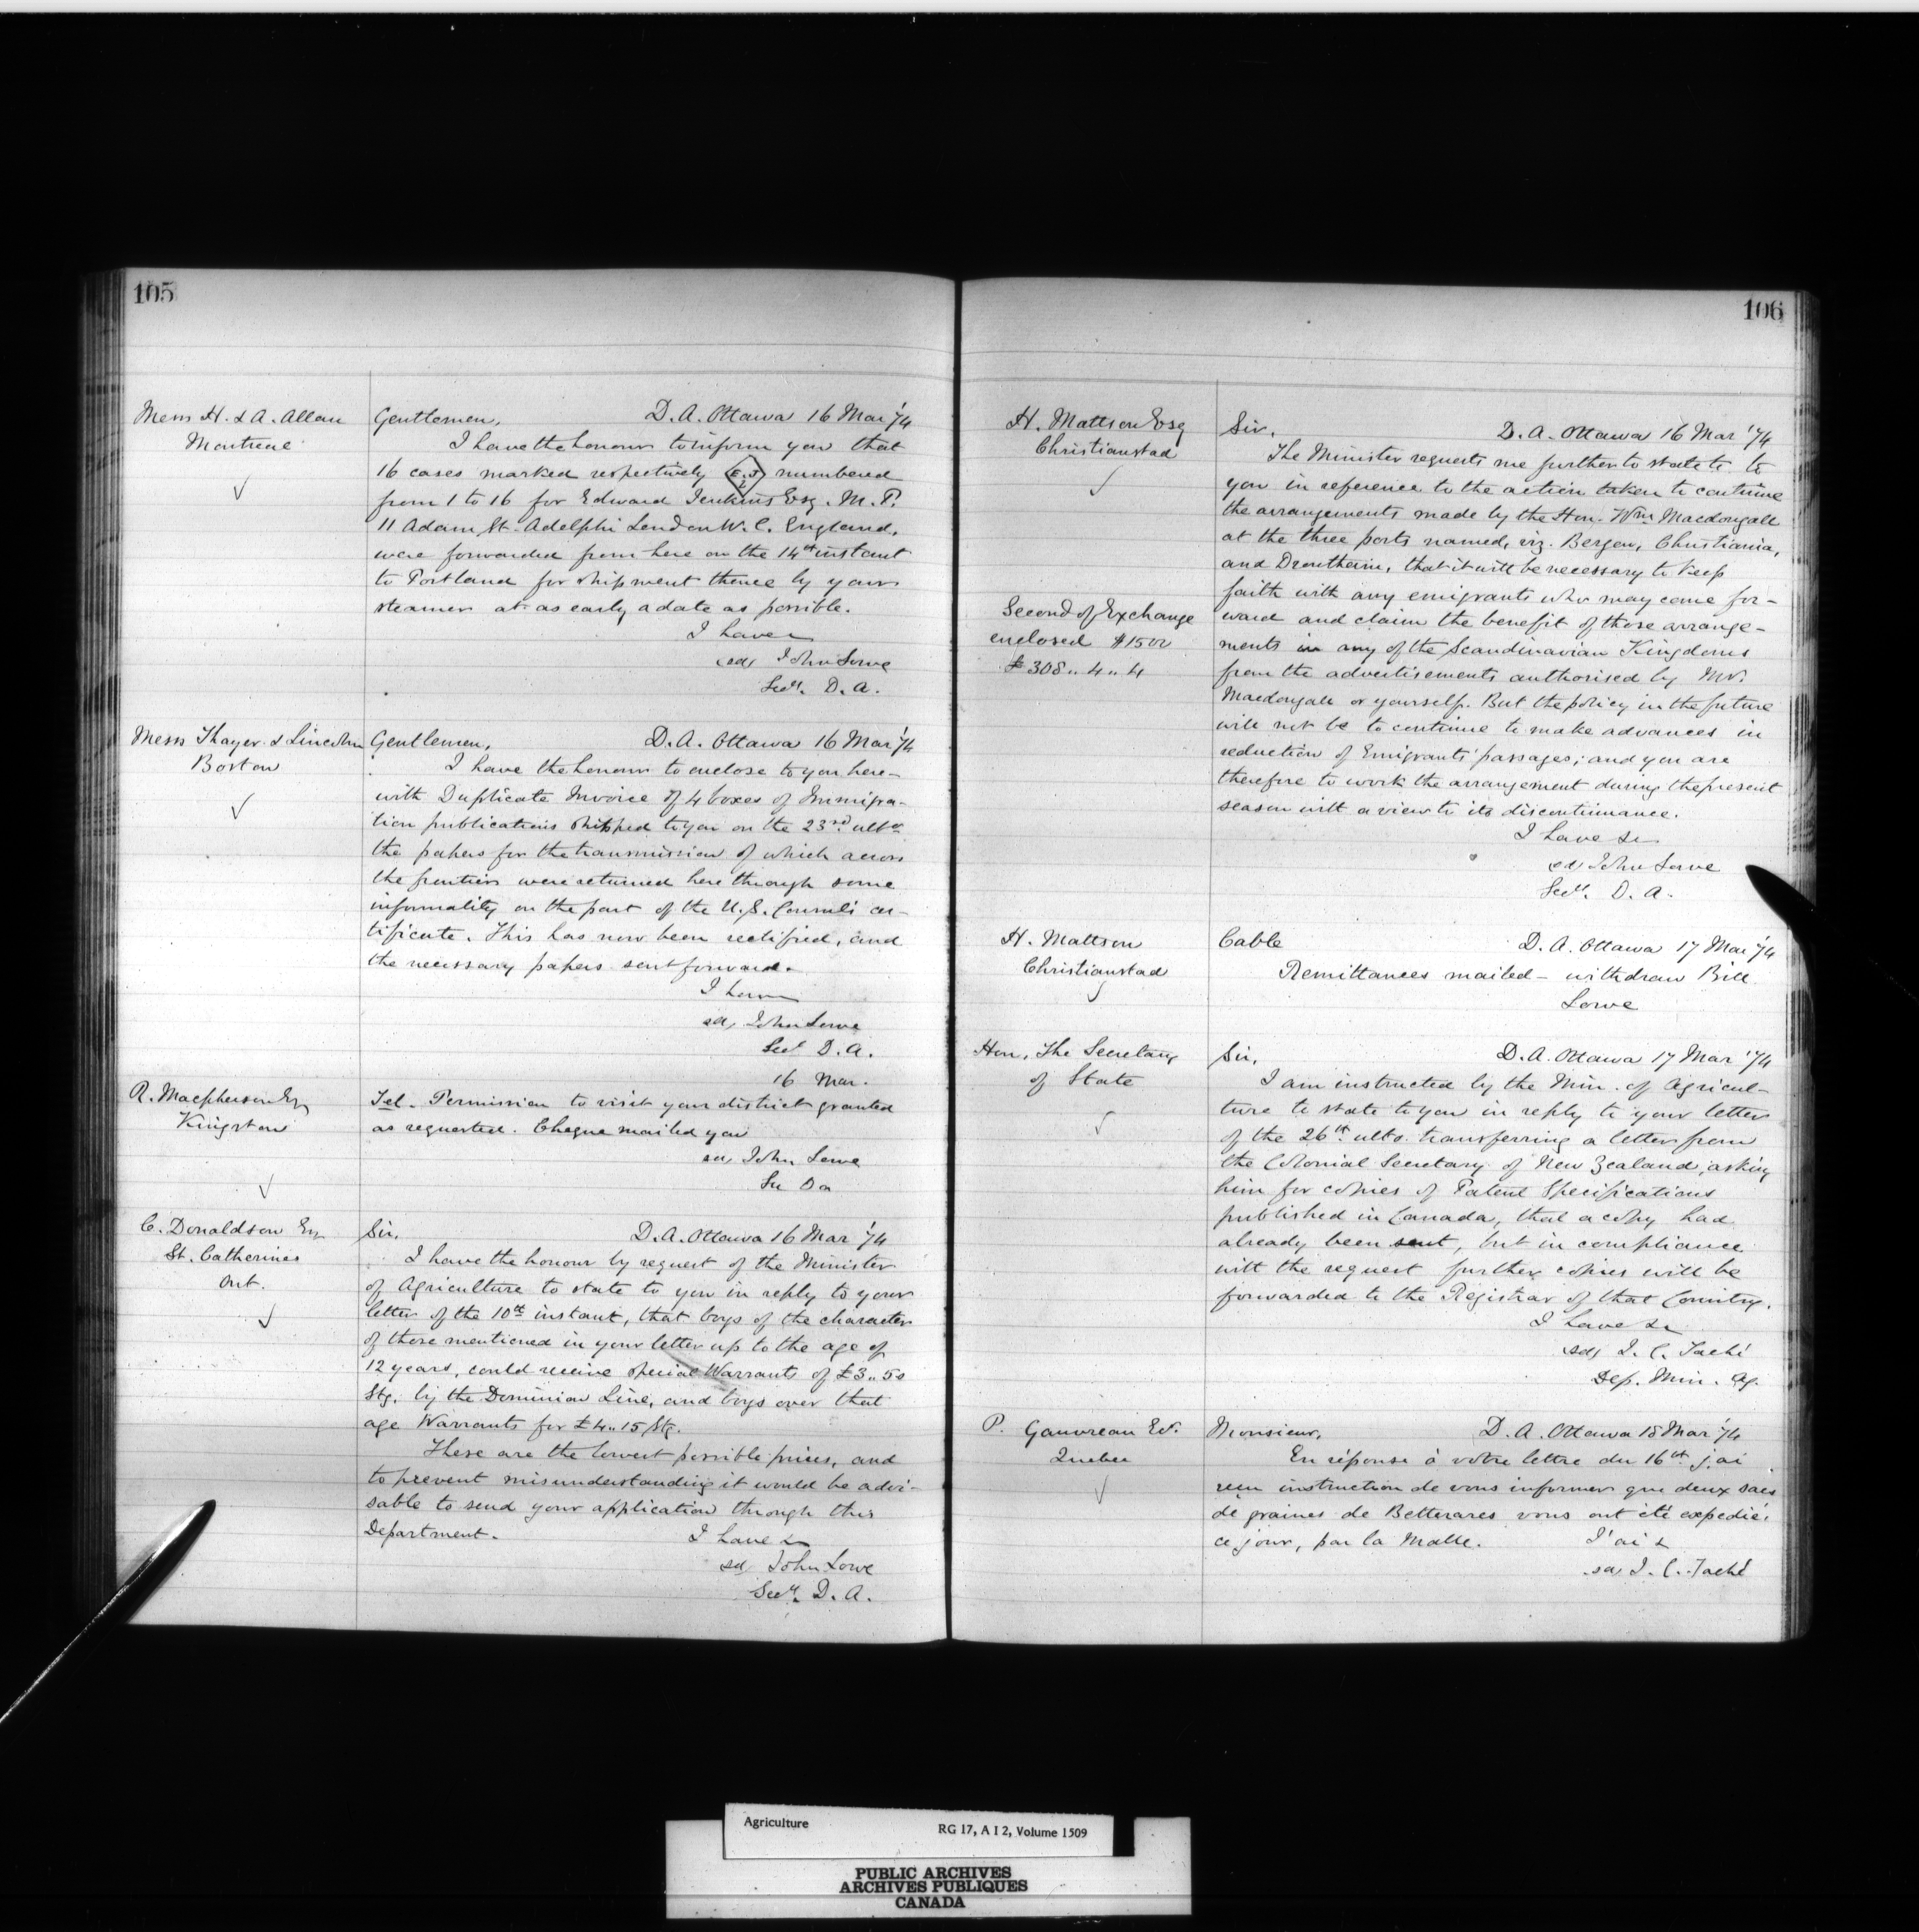 105
Mess H. & A. Allan
Montreal
Gentlemen, D. A. Ottawa 16 Mar '74
I have the honour to inform you that
16 cases marked respectively E.J L numbered
from 1 to 16 for Edward Jenkins Esq. M.P.
11 Adam St. Adelphi London W.C. England,
were forwarded from here on the 14th instant
to Portland for shipment thence by your
steamer at as early a date as possible.
I have
sd, John Lowe
Secy. D. A.
Mess Thayer & Lincoln
Boston
Gentlemen, D. A. Ottawa 16 Mar '74
I have the honour to enclose to you here-
with Duplicate Invoice of 4 boxes of Immigra-
tion publications shipped to you on the 23rd ulto
the papers for the transmission of which across
the frontier were returned here through some
informality on the part of the U.S. Consul's cer-
tificate. This has now been rectified, and
the necessary papers sent forward.
I have
sd, John Lowe
Secy D. A.
16 Mar.
R. Macpherson Esq
Kingston
Tel. Permission to visit your district granted
as requested. Cheque mailed you
sd, John Lowe
Sec D a
C. Donaldson Esq
St. Catherines
Ont.
Sir, D. A. Ottawa 16 Mar '74
I have the honour by request of the Minister
of Agriculture to state to you in reply to your
letter of the 10th instant, that boys of the character
of those mentioned in your letter up to the age of
12 years, could receive special Warrants of £3..5s
Stg. by the Dominion Line, and boys over that
age Warrants for £4..15 Stg.
These are the lowest possible prices, and
to prevent misunderstanding it would be advi-
sable to send your application through this
Department.
I have &
sd, John Lowe
Secy. D. A.
106
H. Mattson Esq
Christianstad
Second of Exchange
enclosed $1500
£308..4..4
Sir, D. A. Ottawa 16 Mar '74
The Minister requests me further to state to to
you in reference to the action taken to continue
the arrangements made by the Hon. Wm Macdougall
at the three ports named, viz. Bergen, Christiania,
and Drontheim, that it will be necessary to keep
faith with any emigrants who may come for-
ward and claim the benefit of those arrange-
ments in any of the Scandinavian Kingdoms
from the advertisements authorised by Mr.
Macdougall or yourself. But the policy in the future
will not be to continue to make advances in
reduction of Emigrants' passages; and you are
therefore to work the arrangement during the present
season with a view to its discontinuance.
I have &c
sd John Lowe
Secy. D. A.
H. Mattson
Christianstad
Cable D. A. Ottawa 17 Mar '74
Remittances mailed – withdraw Bill
Lowe
Hon. The Secretary
of State
Sir, D. A. Ottawa 17 Mar '74
I am instructed by the Min. of Agricul-
ture to state to you in reply to your letter
of the 26th ulto. transferring a letter from
the Colonial Secretary of New Zealand, asking
him for copies of Patent Specifications
published in Canada, that a copy had
already been sent, but in compliance
with the request further copies will be
forwarded to the Registrar of that Country.
I have &c
sd, J. C. Taché
Dep. Min. Ag.
P. Gauvreau Er.
Quebec
Monsieur, D. A. Ottawa 18 Mar '74
En réponse à votre lettre du 16th j'ai
reçu instruction de vous informer que deux sacs
de graines de Betteraves vous ont été expédié,
ce jour, par la Malle.
J'ai &
sd J. C. Taché
Agriculture RG 17, A I 2, Volume 1509
PUBLIC ARCHIVES
ARCHIVES PUBLIQUES
CANADA